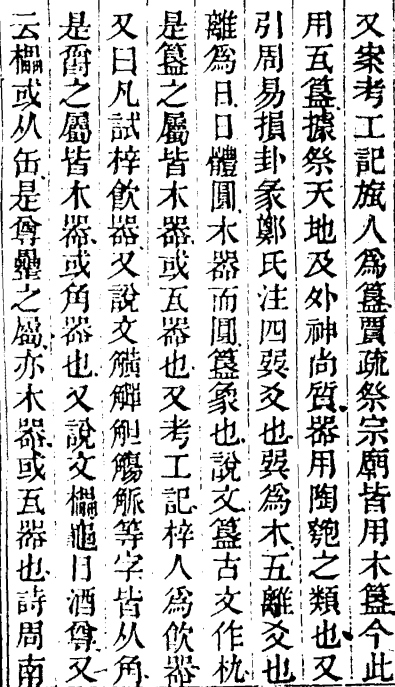 又案考工記旊人爲簋賈疏祭宗廟皆用木簋今此
用瓦簋據祭天地及外神尚質器用陶匏之類也又
引周易損卦彖鄭氏注四巽爻也巽爲木五離爻也
離爲日日體圓木器而圓簋象也說文簋古文作朹
是簋之屬皆木器或瓦器也又考工記梓人爲飲器
又曰凡試梓飲器又說文觵觶觛觴觚等字皆从角
是爵之屬皆木器或角器也又說文櫑龜目酒尊又
云櫑或从缶是尊罍之屬亦木器或瓦器也詩周南